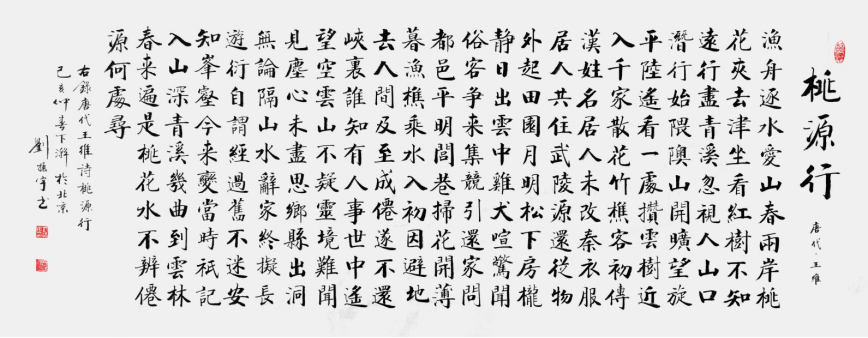 桃源行
唐代·王維
漁舟逐水愛山春兩岸桃
花夾去津坐看紅樹不知
遠行盡青溪忽視人山口
潛行始隈隩山開曠望旋
平陸遙看一處攢雲樹近
入千家散花竹樵客初傳
漢姓名居人未改秦衣服
居人共住武陵源還從物
外起田園月明松下房櫳
靜日出雲中雞犬喧驚聞
俗客爭来集競引還家問
都邑平明閭巷掃花開薄
暮漁樵乘水入初因避地
去人間及至成僊遂不還
峽裏誰知有人事世中遙
望空雲山不疑靈境難聞
見塵心未盡思鄉縣出洞
無論隔山水辭家終擬長
遊衍自謂經過舊不迷安
知峯壑今来變當時祇記
入山深青溪幾曲到雲林
春来遍是桃花水不辨僊
源何處尋
右錄唐代王維詩桃源行
己亥仲春下澣於北京
劉宇書